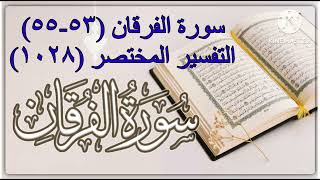 سورة الفرقان (٥٣-٥٥)
التفسير المختصر (١٠٢٨)
سُورَةُ الفُرْقَان